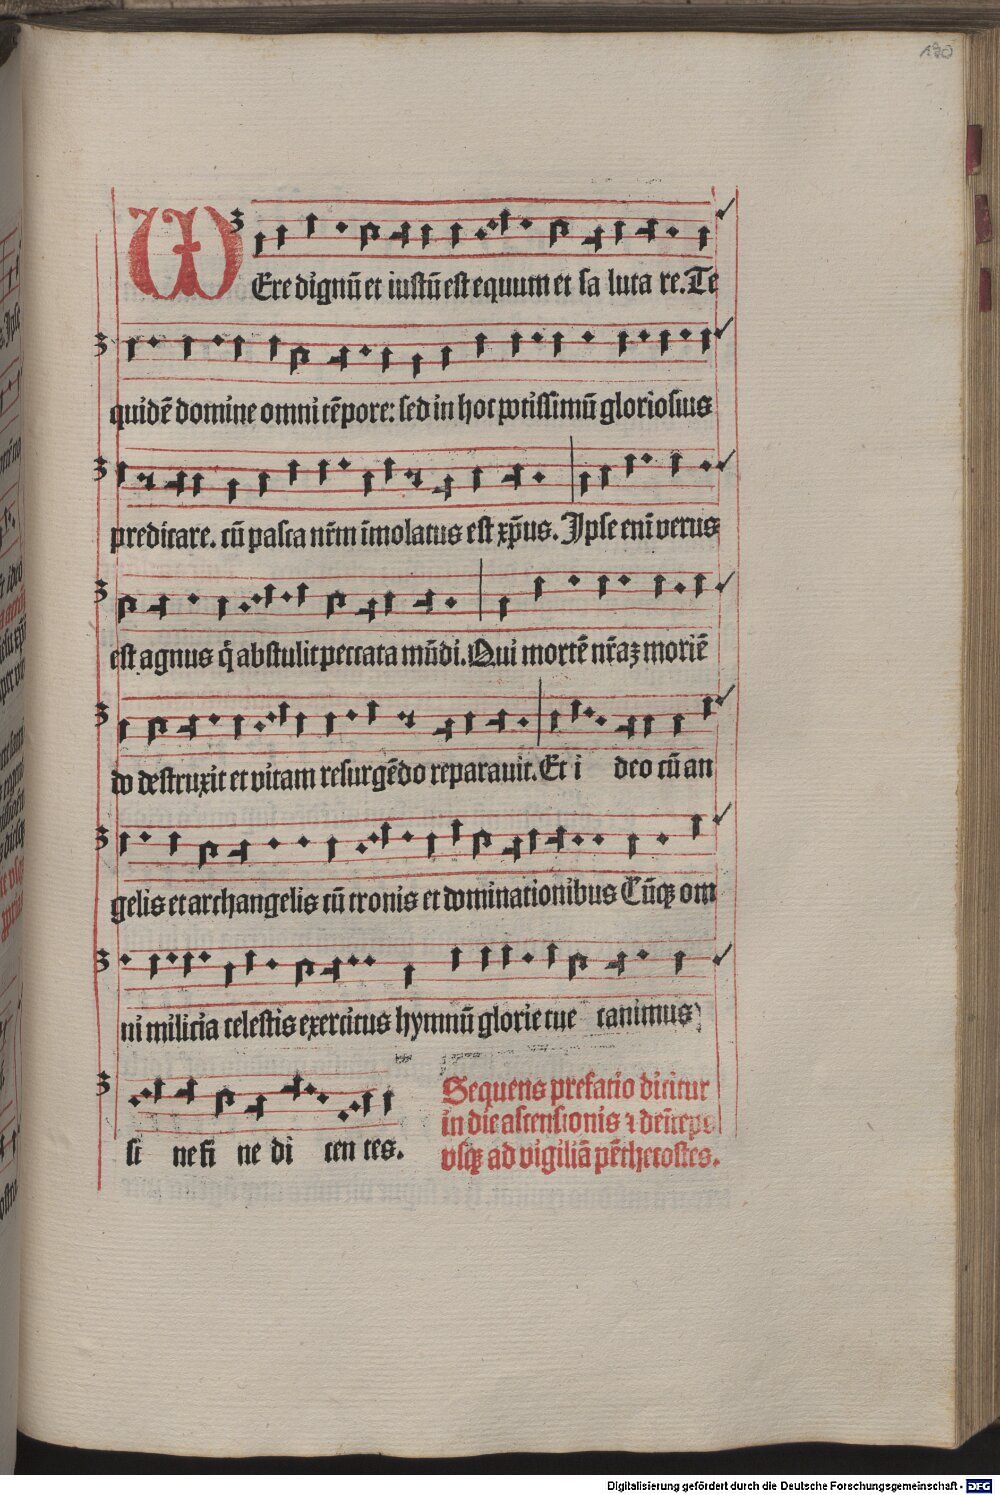 190
WEre dignū et iustū est equum et sa luta re. Te
quidē domine omni tēpore: sed in hoc potissimū gloriosius
predicare. cū pasca nr̄m īmolatus est xp̄us. Ipse enī verus
est agnus q̄ abstulit peccata mūdi. Qui mortē nr̄aꝫ moriē
do destruxit et vitam resurgēdo reparauit. Et i deo cū an
gelis et archangelis cū tronis et dominationibus Cūqꝫ om
ni milicia celestis exercitus hymnū glorie tue canimus
si ne fi ne di cen tes.
Sequens prefatio dicitur
in die ascensionis ⁊ deīceps
vsqꝫ ad vigiliā pēthecostes.
Digitalisierung gefördert durch die Deutsche Forschungsgemeinschaft - DFG